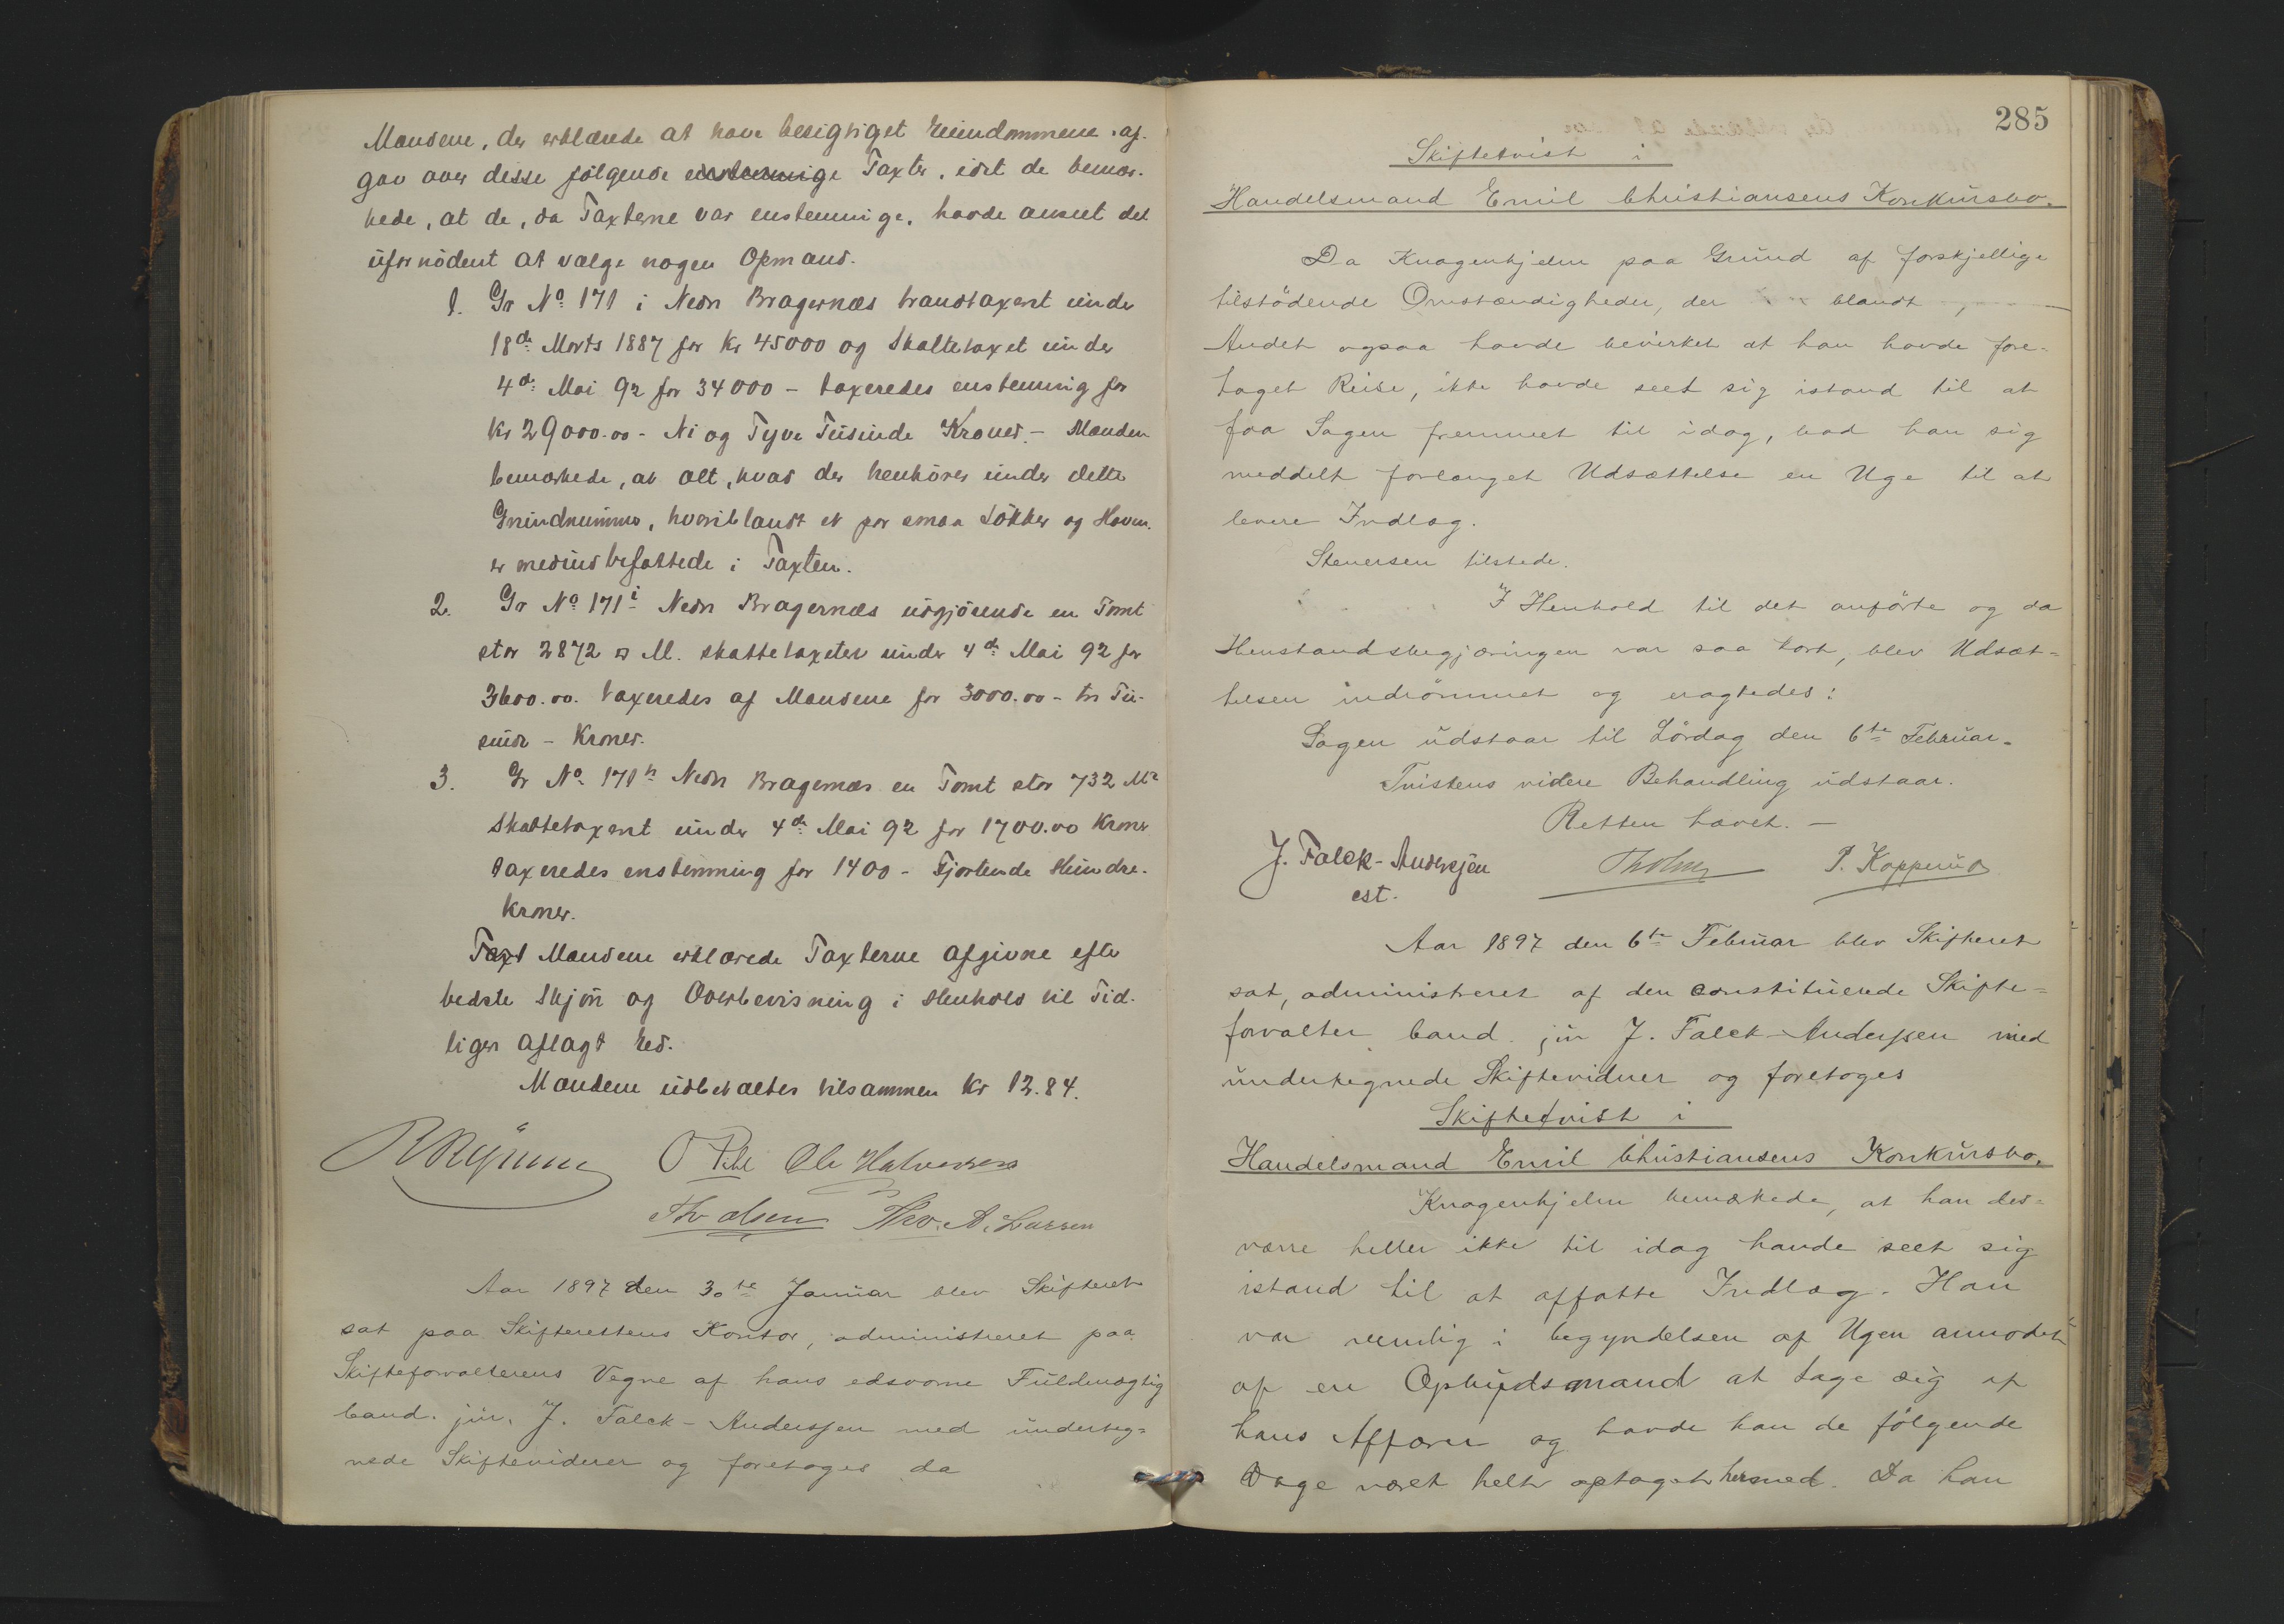 Mændene, der erklærede at have besigtiget Eiendommene, af-
gav over disse følgende enstemmige Taxter, idet de bemær-
kede, at de, da Taxterne var enstemmige, havde anseet det
ufornödent at vælge nogen Opmand.
1. Gr No 171 i Nedre Bragernæs brandtaxeret under
18de Marts 1887 for Kr 45000 og Skattetaxet under
4de Mai 92 for 34000 - taxeredes enstemmig for
Kr 29000.00 - Ni og Tyve Tusinde Kroner. - Mændene
bemærkede, at alt, hvad der henhörer under dette
Grundnummer, hvoriblandt et par smaa Lökker og Haven
er medindbefattede i Taxten.
2. Gr No 171 i Nedre Bragernæs udgjörende en Tomt
stor 2872 □ M. skattetaxeter under 4de Mai 92 for
3600.00. taxeredes af Mændene for 3000.00 - tre Tu-
sinde - Kroner.
3. Gr No 171 h Nedre Bragernæs en Tomt stor 732 M2
Skattetaxeret under 4de Mai 92 for 1700.00 Kroner
taxeredes enstemmig for 1400 - Fjortende Hundre-
Kroner.
Taxt Mændene erklærede Taxterne afgivne efter
bedste Skjön og Overbevisning i Henhold til Tid-
ligere aflagt Ed.
Mændene udbetaltes tilsammen Kr 12.84.
O Pihl Ole Halvorsen
Th Olsen Theo. A. Larsen
Aar 1897 den 30te Januar blev Skifteret
sat paa Skifterettens Kontor, administreret paa
Skifteforvalterens Vegne af hans edsvorne Fuldmægtig
Cand. jur. J. Falck-Anderssen med underteg=
nede Skiftevidner og foretoges da
285
Skiftetvist i
Handelsmand Emil Christiansens Konkursbo.
Da Knagenhjelm paa Grund af forskjellige
tilstödende Omstændigheder, der blandt
Andet ogsaa havde bevirket at han havde fore=
taget Reise, ikke havde seet sig istand til at
faa Sagen fremmet til idag, bad han sig
meddelt forlanget Udsættelse en Uge til at
levere Indlæg.
Stenersen tilstede.
I Henhold til det anförte og da
Henstandsbegjæringen var saa kort, blev Udsæt=
telsen indrömmet og eragtedes:
Sagen udstaar til Lördag den 6te Februar.
Tvistens videre Behandling udstaar.
Retten hævet. -
J. Falck-Anderssen Tholsen P. Kopperud
cst.
Aar 1897 den 6te Februar blev Skifteret
sat, administreret af den constituerede Skifte=
forvalter Cand. jur J. Falck-Anderssen med
undertegnede Skiftevidner og foretoges
Skiftetvist i
Handelsmand Emil Christiansens Konkursbo.
Knagenhjelm bemærkede, at han des=
værre heller ikke til idag havde seet sig
istand til at affatte Indlæg. Han
var nemlig i begyndelsen af Ugen anmodet
af en Opbudsmand at tage sig af
hans Affærer og havde han de fölgende
Dage været helt optaget hermed. Da han